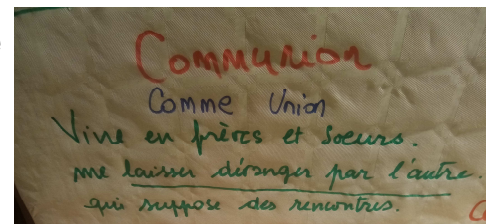 Communion
Comme Union
Vivre en frères et Soeurs.
me laisser déranger par l'autre.
qui suppose des rencontres.